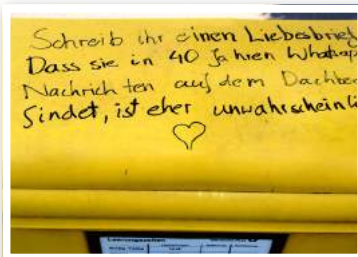 Schreib ihr einen Liebesbrief
Dass sie in 40 Jahren Whatsap
Nachrichten auf dem Dachbo
findet, ist eher unwahrscheinli
♡
Leerungszeiten